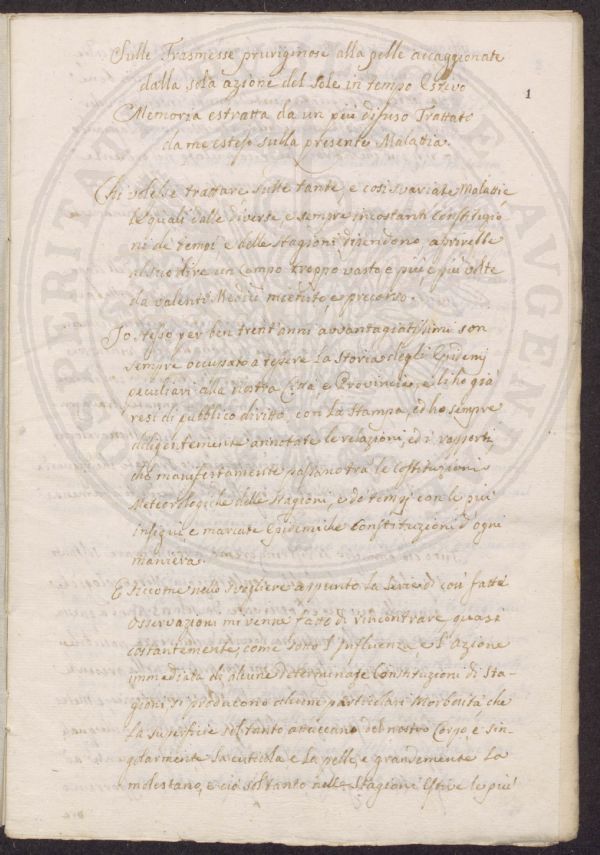 Sulle Trasmesse pruriginose alla pelle accaggionate
dalla sola azione del Sole in tempo Estivo
Memoria estratta da un più difuso Trattato
da me esteso sulla presente Malattia.
1
Chi volesse trattare sulle tante, e così svariate Malattie
le quali dalle diverse, e sempre incostanti Constituzio
ni de tempi e delle Stagioni discendono, aprirebbe
al suo dire un Campo troppo vasto, e più, e più volte
da valenti Medici mietuto, e precorso.
Io stesso per ben trent'anni avvantagiatissimi son
sempre occupato a tessere la Storia degli Epidemj
peculiari alla nostra Città, e Provincia, e li ho già
resi di pubblico diritto, con la Stampa, ed ho sempre
diligentemente annotate le relazioni, ed i rapporti,
che manifestamente passano tra le Costituzioni
Meteorologiche delle Stagioni, e de tempj con le più
insigni e marcate Epidemiche Constituzioni d'ogni
maniera.
E siccome nello svegliere appunto la Serie di così fatte
osservazioni mi venne fatto di rincontrare quasi
costantemente come sotto l'Influenza, e l'Azione
immediata di alcune determinate Constituzioni di Sta-
gioni si producono alcune particolari Morbosità che
la superficie soltanto attaccano del nostro Corpo, e sin-
golarmente la cuticola e la pelle, e grandemente la
molestano, e ciò soltanto nelle Stagioni Estive le più
PROSPERITATI
AVGENDAE